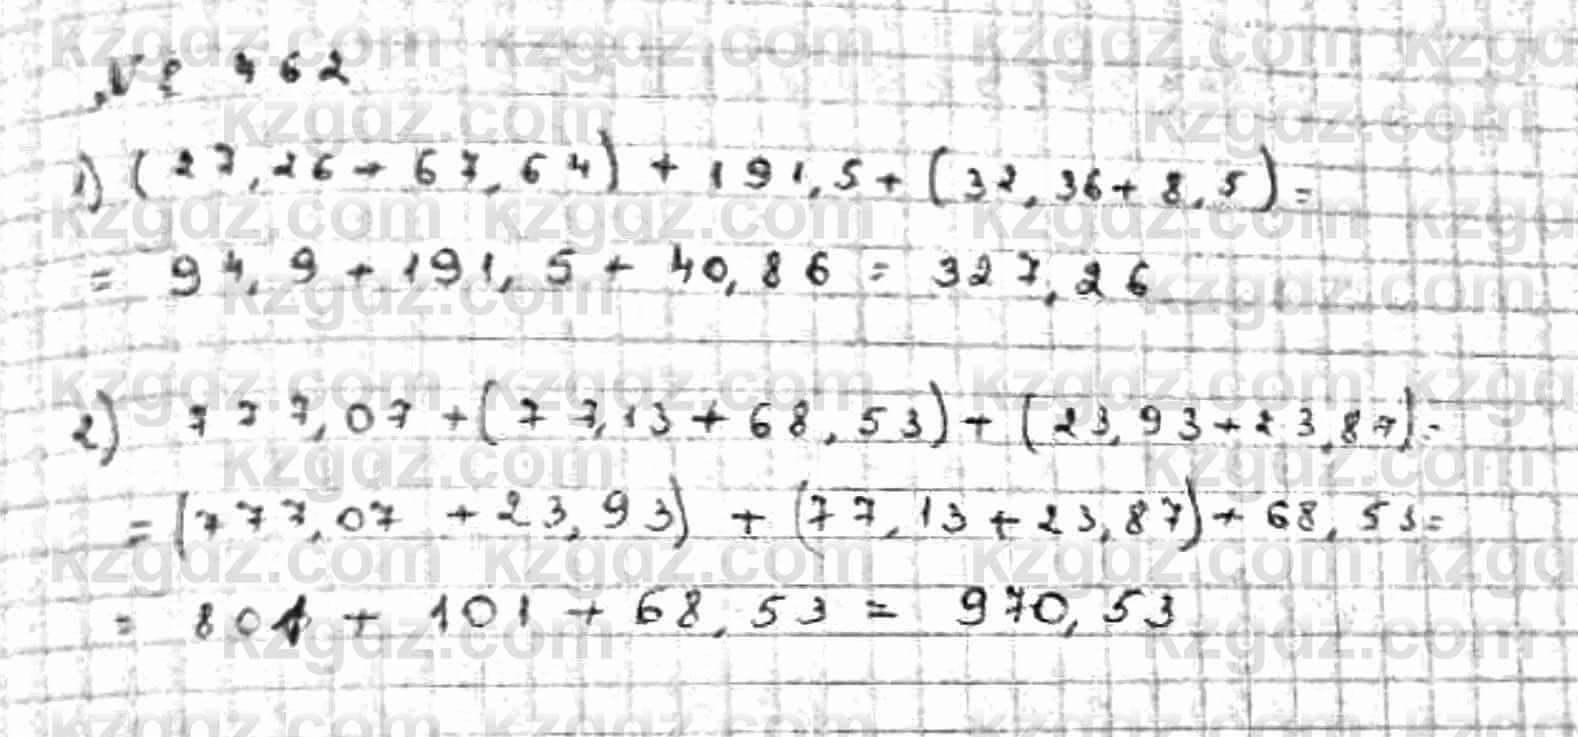 № 462
1) (27,26 + 67,64) + 191,5 + (32,36 + 8,5) =
= 94,9 + 191,5 + 40,86 = 327,26
2) 777,07 + (77,13 + 68,53) + (23,93 + 23,87) =
= (777,07 + 23,93) + (77,13 + 23,87) + 68,53 =
= 801 + 101 + 68,53 = 970,53
kzgdz.com kzgdz.com kzgdz.com